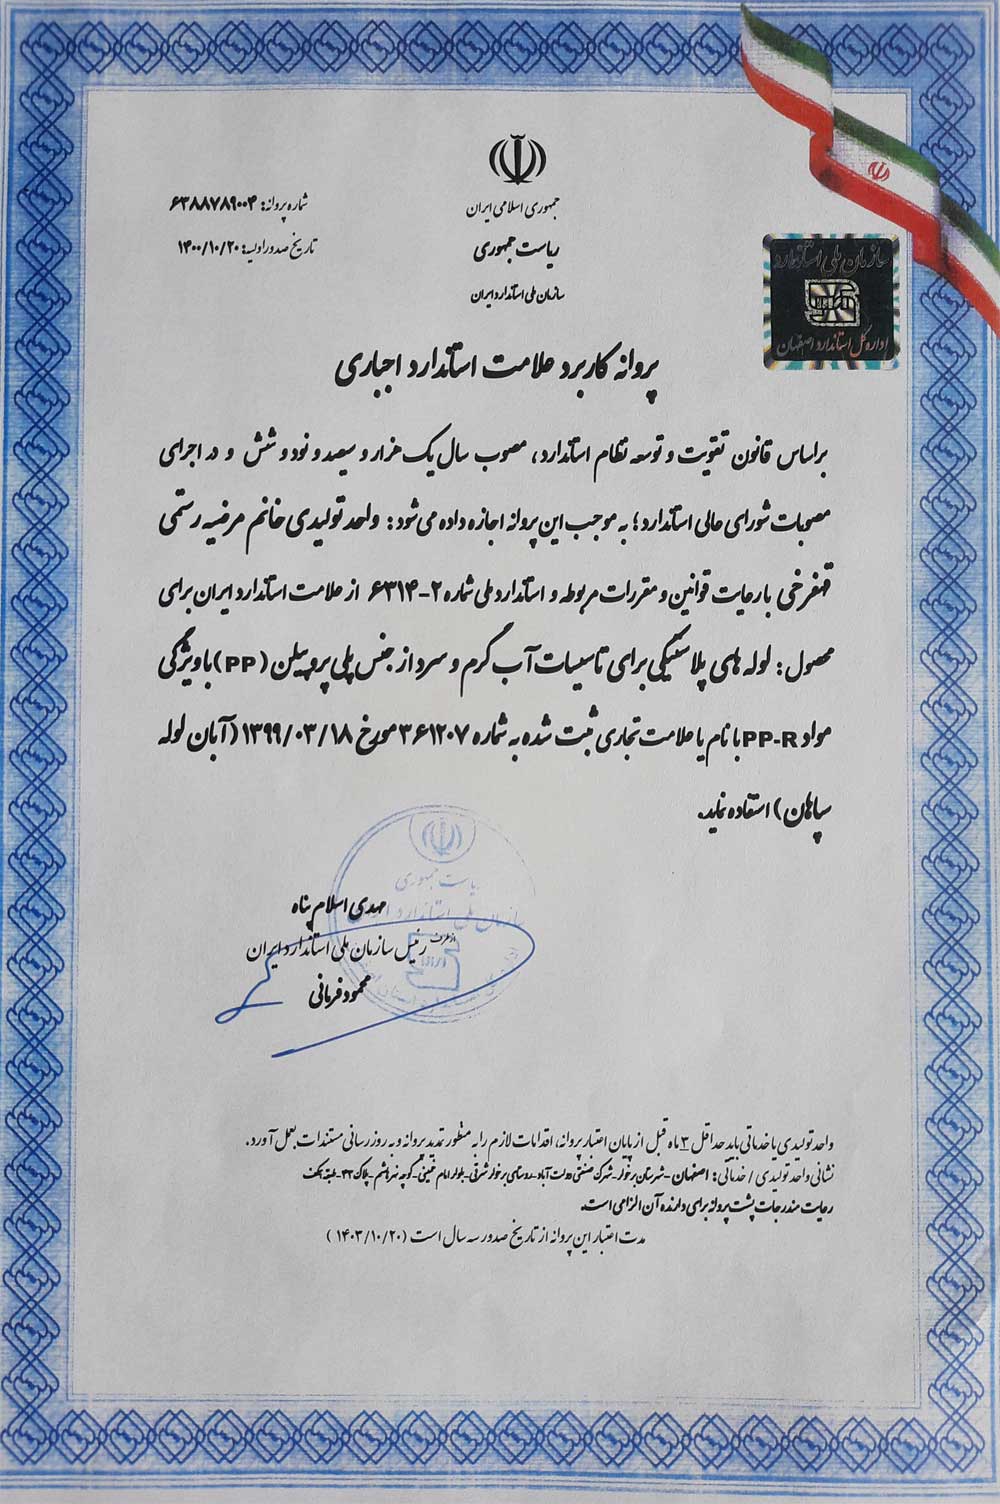 جمهوری اسلامی ایران
ریاست جمهوری
سازمان ملی استاندارد ایران
شماره پروانه: ۶۳۸۸۷۸۹۰۰۴
تاریخ صدور اولیه: ۱۴۰۰/۱۰/۲۰
سازمان ملی استاندارد
اداره کل استاندارد اصفهان
پروانه کاربرد علامت استاندارد اجباری
براساس قانون تقویت و توسعه نظام استاندارد، مصوب سال یک هزار و سیصد و نود و شش و در اجرای
مصوبات شورای عالی استاندارد؛ به موجب این پروانه اجازه داده می شود: واحد تولیدی خانم مرضیه رستمی
قهفرخی با رعایت قوانین و مقررات مربوطه و استاندارد ملی شماره ۲-۶۳۱۴ از علامت استاندارد ایران برای
محصول: لوله های پلاستیکی برای تاسیسات آب گرم و سرد از جنس پلی پروپیلن (PP) با ویژگی
مواد PP-R با نام یا علامت تجاری ثبت شده به شماره ۳۶۱۲۰۷ مورخ ۱۳۹۹/۰۳/۱۸ (آبان لوله
سپاهان) استفاده نماید.
ریاست جمهوری
سازمان ملی استاندارد ایران
مهدی اسلام پناه
از طرف رئیس سازمان ملی استاندارد ایران
محمود فرمانی
واحد تولیدی یا خدماتی باید حداقل ۳ ماه قبل از پایان اعتبار پروانه، اقدامات لازم را به منظور تمدید پروانه و به روزرسانی مستندات بعمل آورد.
نشانی واحد تولیدی / خدماتی: اصفهان-شهرستان برخوار-شهرک صنعتی دولت آباد-روستای برخوار شرقی-بلوار امام خمینی-کوچه نهر هاشم-پلاک ۳۲-طبقه همکف
رعایت مندرجات پشت پروانه برای دارنده آن الزامی است.
مدت اعتبار این پروانه از تاریخ صدور سه سال است (۱۴۰۳/۱۰/۲۰)